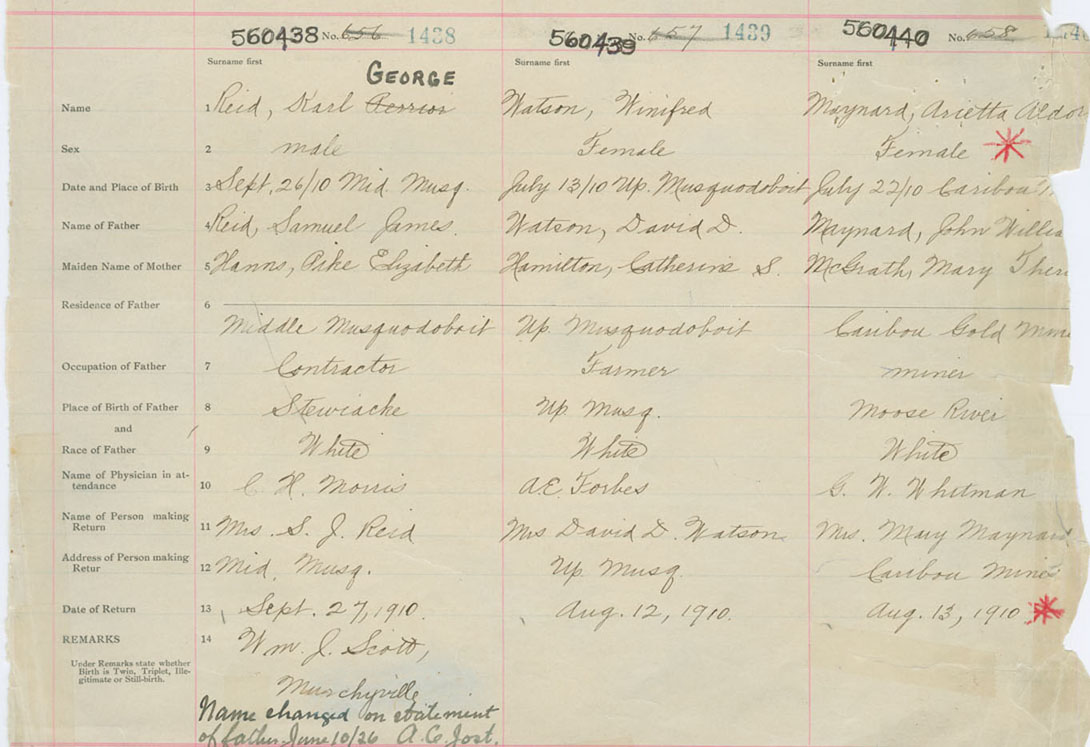 560438 No. 656 1438 560439 No. 657 1439 560440 No. 658
Surname first Surname first Surname first
GEORGE
Name 1 Reid, Karl Watson, Winifred Maynard, Arietta
Sex 2 male Female Female
Date and Place of Birth 3 Sept, 26/10 Mid Musq. July 13/10 Up. Musquodoboit July 22/10 Caribou
Name of Father 4 Reid, Samuel James. Watson, David D. Maynard, John
Maiden Name of Mother 5 Hanns, Pike Elizabeth Hamilton, Catherine S. McGrath, Mary
Residence of Father 6
Middle Musquodoboit Up. Musquodoboit Caribou Gold
Occupation of Father 7 Contractor Farmer miner
Place of Birth of Father 8 Stewiacke Up. Musq. Moose River
and
Race of Father 9 White White White
Name of Physician in at-
tendance 10 C. H. Morris A.E. Forbes G. W. Whitman
Name of Person making
Return 11 Mrs. S. J. Reid Mrs David D. Watson Mrs. Mary Maynard
Address of Person making
Retur 12 Mid. Musq. Up. Musq. Caribou
Date of Return 13 Sept. 27, 1910. Aug. 12, 1910. Aug. 13, 1910
REMARKS 14 Wm. J. Scott,
Under Remarks state whether
Birth is Twin, Triplet, Ille-
gitimate or Still-birth.
Murchyville
Name changed on statement
of father June 10/26 A.C. Jost.